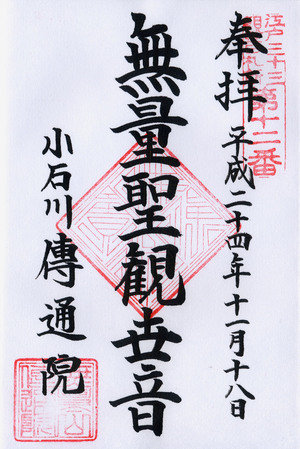 江戸三十三
観音札所
第十二番
奉拝
平成二十四年十一月十八日
無量聖観世音
小石川
傳通院